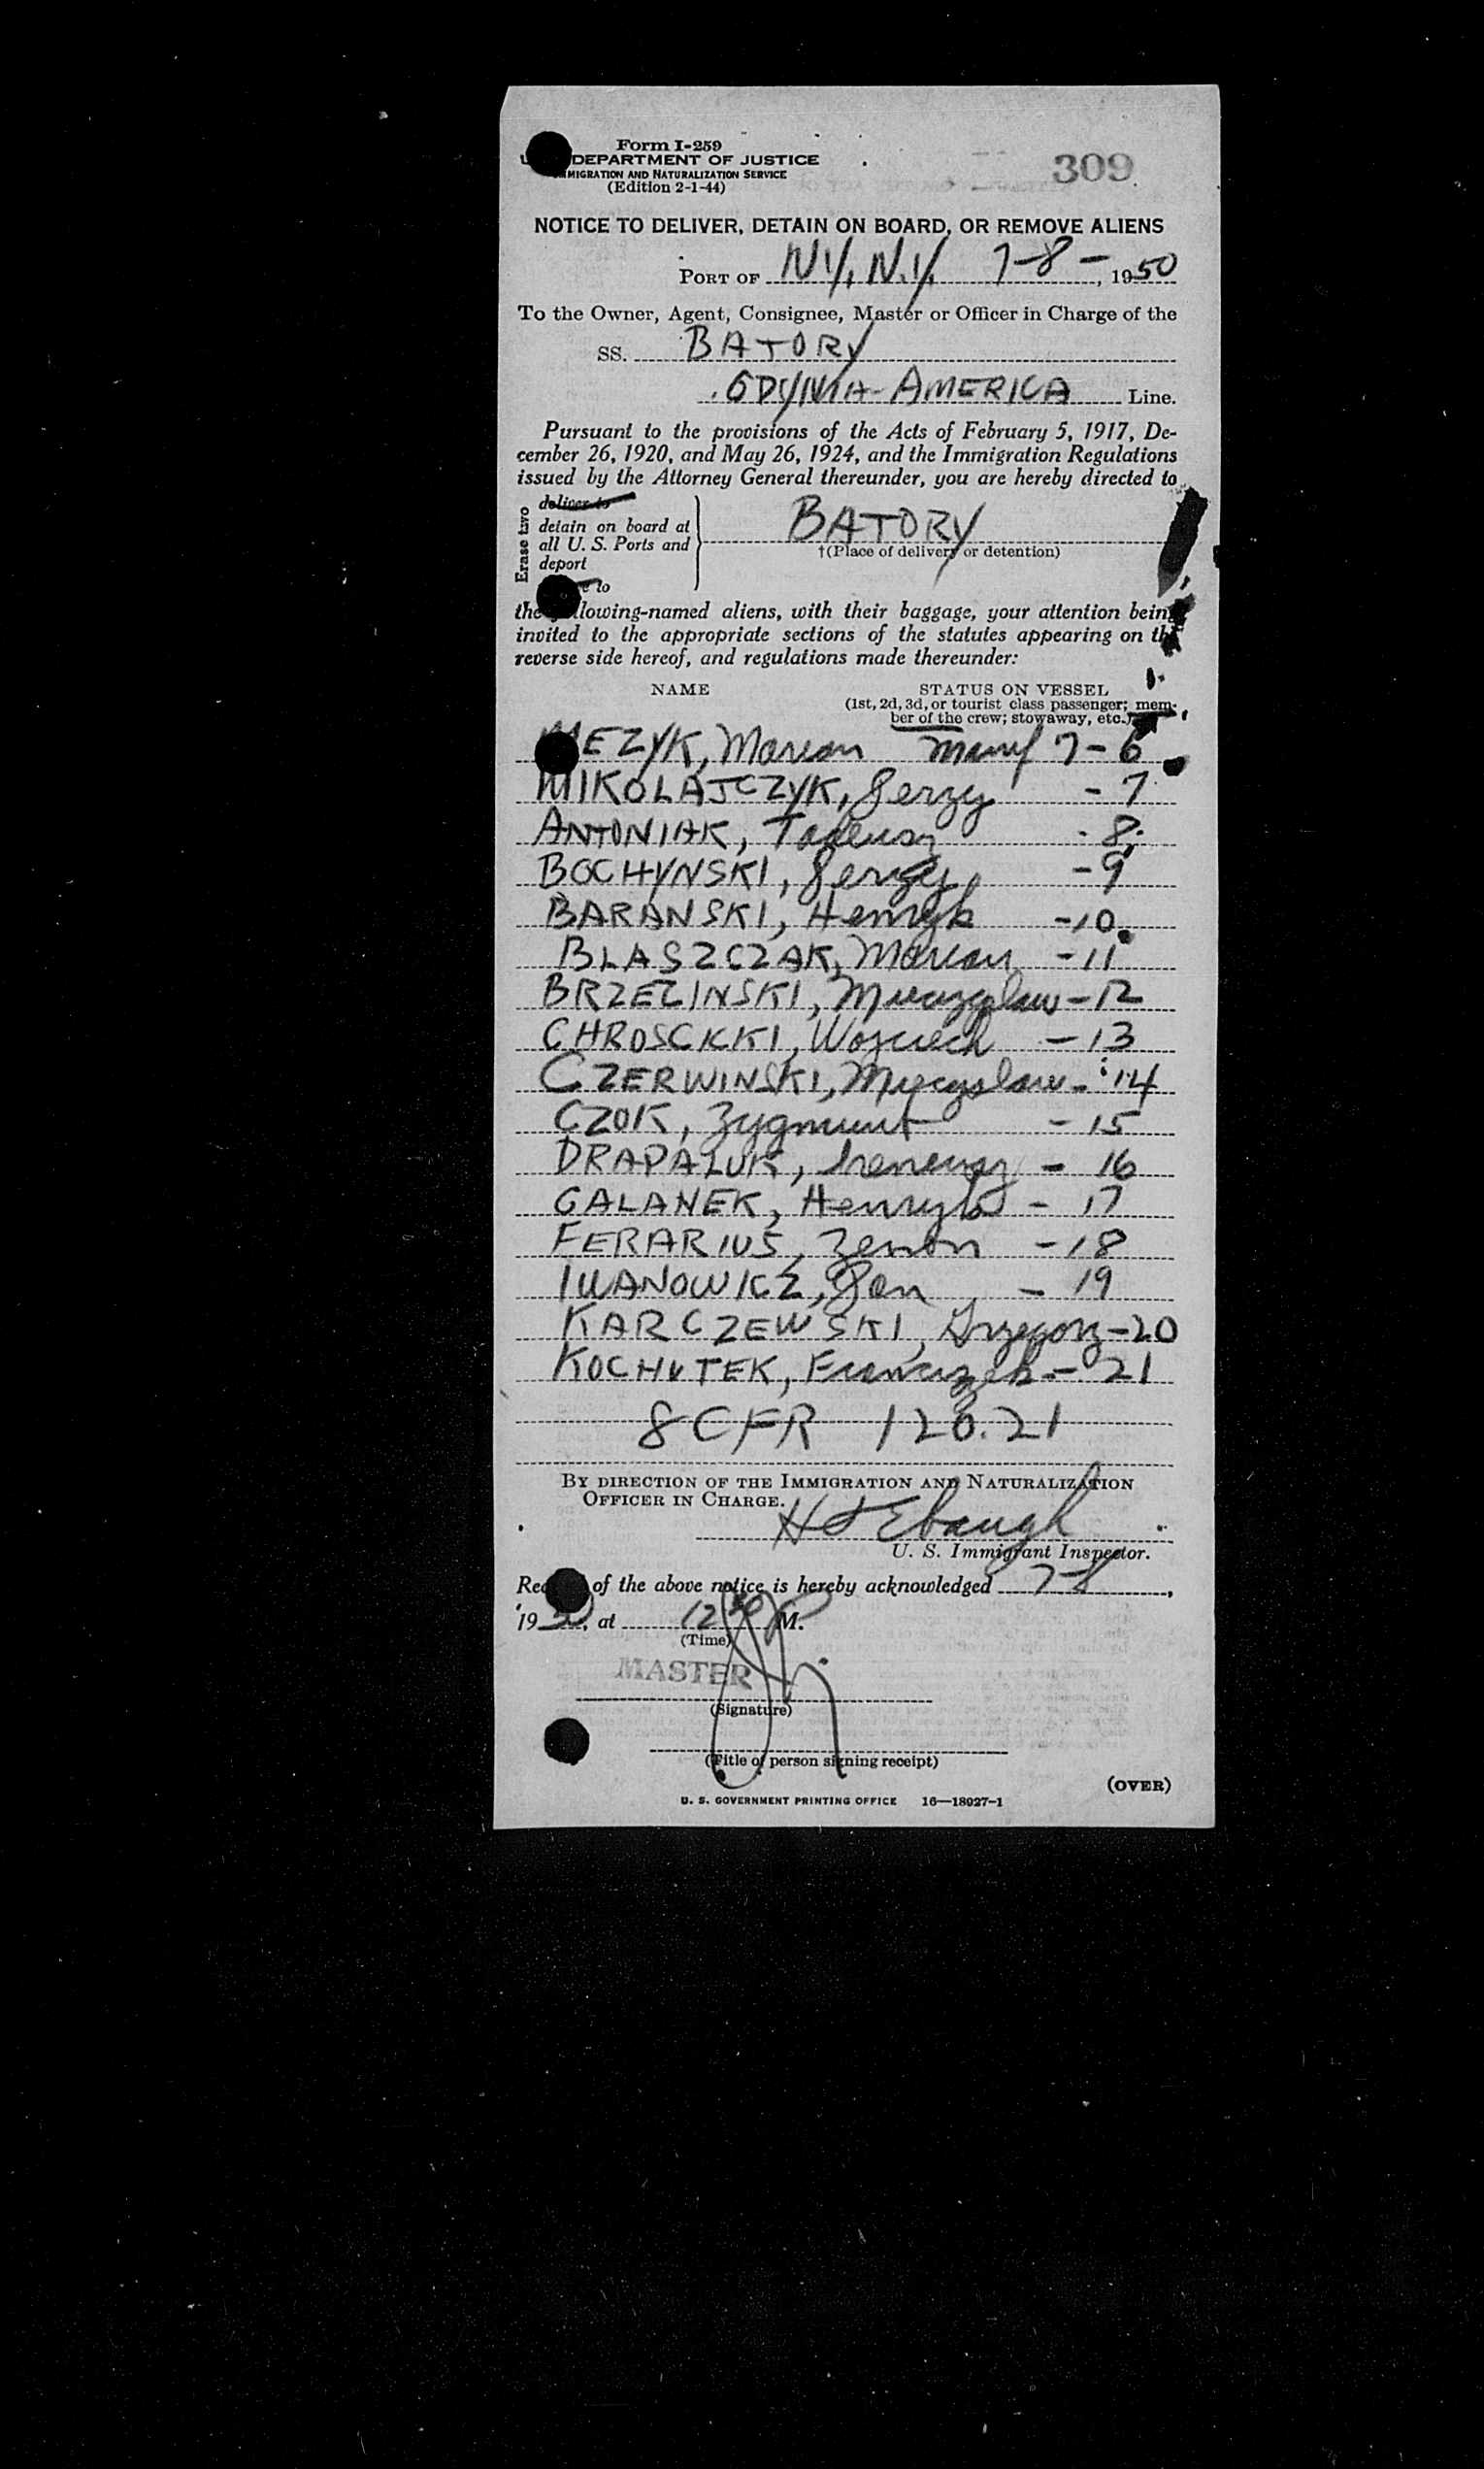 Form I-259
309
DEPARTMENT OF JUSTICE
IMMIGRATION AND NATURALIZATION SERVICE
(Edition 2-1-44)
NOTICE TO DELIVER, DETAIN ON BOARD, OR REMOVE ALIENS
PORT OF NY, N.Y. 7-8-, 1950
To the Owner, Agent, Consignee, Master or Officer in Charge of the
SS. BATORY
GDYNIA-AMERICA Line.
Pursuant to the provisions of the Acts of February 5, 1917, De-
cember 26, 1920, and May 26, 1924, and the Immigration Regulations
issued by the Attorney General thereunder, you are hereby directed to
Erase two
deliver to
detain on board at
all U. S. Ports and
deport
to
BATORY
†(Place of delivery or detention)
the following-named aliens, with their baggage, your attention being
invited to the appropriate sections of the statutes appearing on the
reverse side hereof, and regulations made thereunder:
NAME STATUS ON VESSEL
(1st, 2d, 3d, or tourist class passenger; mem-
ber of the crew; stowaway, etc.)
MEZYK, Marian Manif 7-6
MIKOLAJCZYK, Jerzy -7
ANTONIAK, Tadeusz -8
BOCHYNSKI, Jerzy -9
BARANSKI, Henryk -10
BLASZCZAK, Marian -11
BRZEZINSKI, Mieczyslaw -12
CHROSCKKI, Wojciech -13
CZERWINSKI, Mieczyslaw -14
CZOK, Zygmunt -15
DRAPALUK, Ireneusz - 16
GALANEK, Henryk - 17
FERARIUS, Zenon -18
IWANOWICZ, Jan - 19
KARCZEWSKI, Grzegorz -20
KOCHUTEK, Franciszek - 21
8 CFR 120.21
BY DIRECTION OF THE IMMIGRATION AND NATURALIZATION
OFFICER IN CHARGE.
H J Ebaugh
U. S. Immigrant Inspector.
Receipt of the above notice is hereby acknowledged 7-8,
1950, at 12 30 P M.
(Time)
MASTER
(Signature)
(Title of person signing receipt)
(OVER)
U. S. GOVERNMENT PRINTING OFFICE 16—18927-1